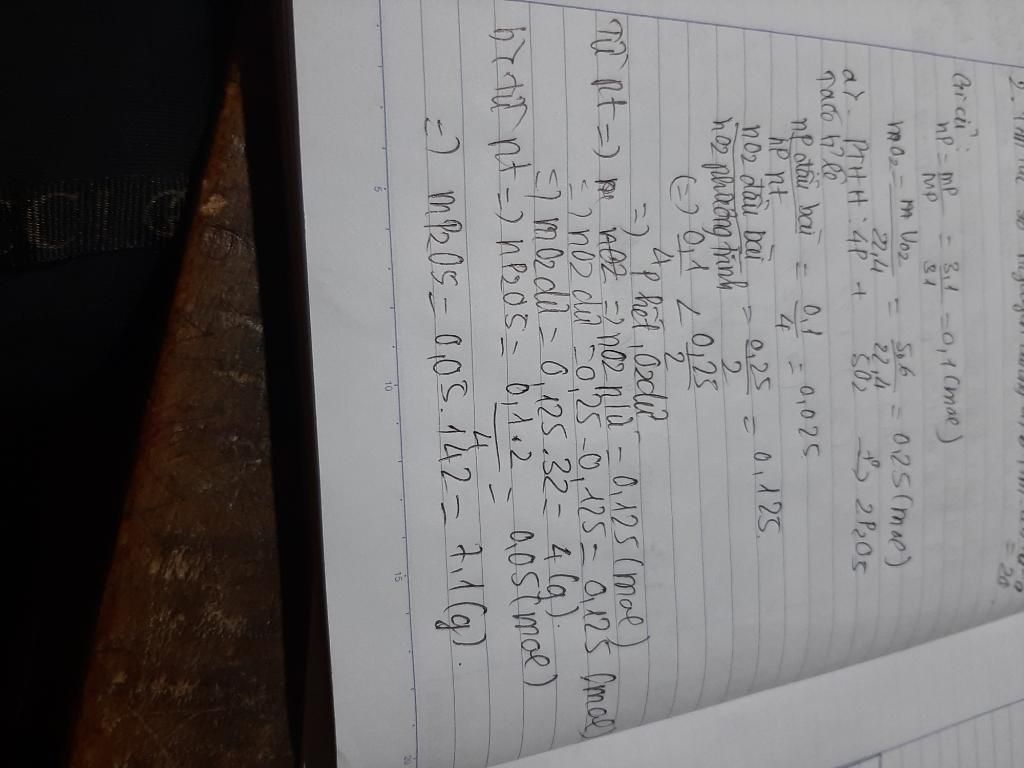 Giải
nP = mP/MP = 3,1/31 = 0,1 (mol)
nO2 = VO2/22,4 = 5,6/22,4 = 0,25 (mol)
a) PTHH: 4P + 5O2 -t°-> 2P2O5
nP đầu bài / nP pt = 0,1/4 = 0,025
nO2 đầu bài / nO2 phương trình = 0,25/2 = 0,125
(=) 0,1/4 < 0,25/2
=) P hết, O2 dư
Từ pt =) nO2 pư = 0,125 (mol)
=) nO2 dư = 0,25 - 0,125 = 0,125 (mol)
=) mO2 dư = 0,125.32 = 4 (g)
b) Từ pt =) nP2O5 = 0,1.2/4 = 0,05 (mol)
=) mP2O5 = 0,05.142 = 7,1 (g).